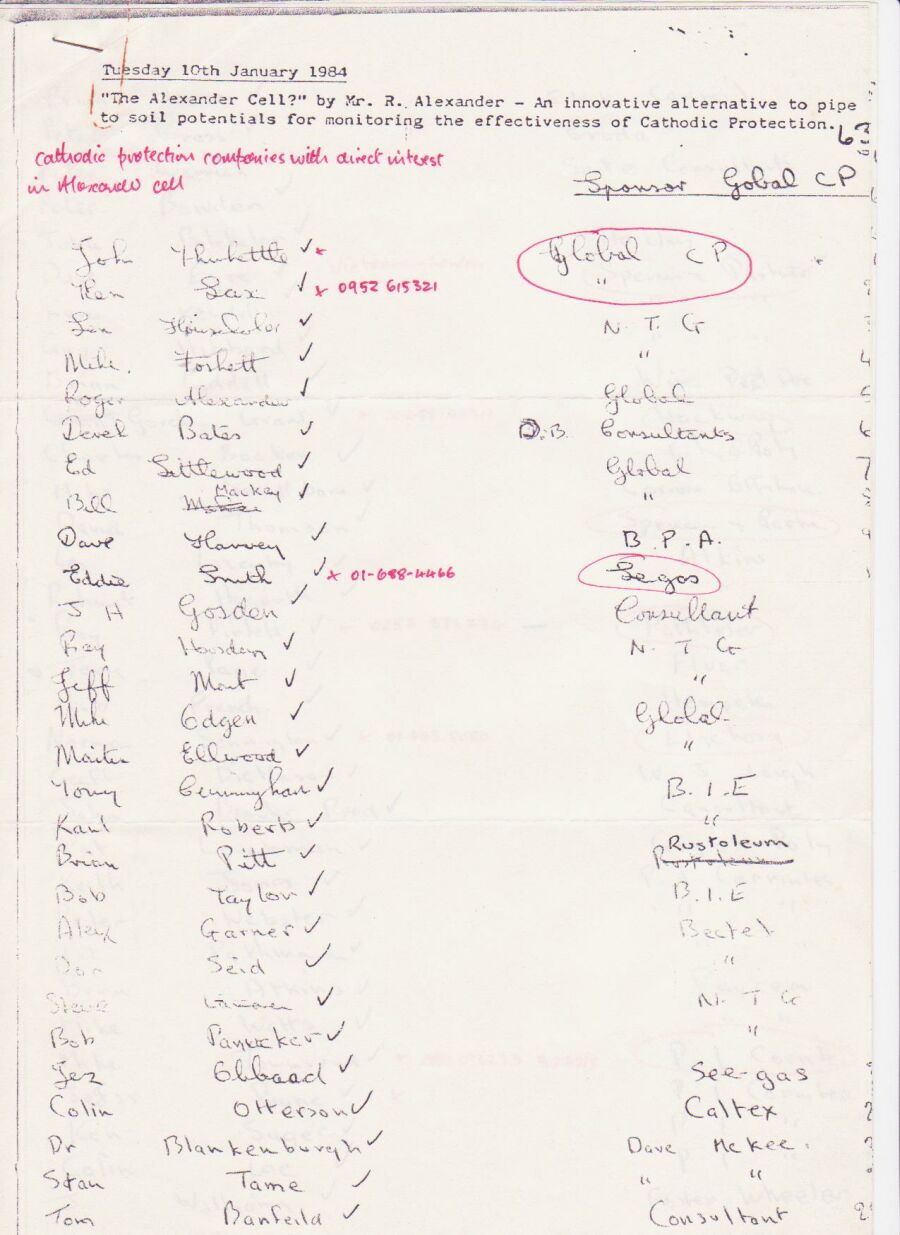 Tuesday 10th January 1984
"The Alexander Cell?" by Mr. R. Alexander - An innovative alternative to pipe
to soil potentials for monitoring the effectiveness of Cathodic Protection.
63
cathodic protection companies with direct interest
in Alexander cell
Sponsor Gobal CP
John Thurkettle ✓ x Global CP
Ken Lax ✓ x 0952 615321 "
Len ✓ N.T.G 3
Mike. Foskett ✓ " 4
Roger Alexander ✓ Global 5
Derek Bates ✓ D.B. Consultants 6
Ed Littlewood ✓ Global 7
Bill Mackey ✓ "
Dave Harvey ✓ B.P.A. 9
Eddie Smith ✓ x 01-688-4466 Segas
J H Gosden ✓ Consultant
Ray ✓ N.T.G
Jeff Mont ✓ "
Mike Edgen ✓ Global
Martin Ellwood ✓ "
Tony ✓ B.I.E
Karl Roberts ✓ "
Brian Pitt ✓ Rustoleum
Bob Taylor ✓ B.I.E
Alex Garner ✓ Bectel
Don Seid ✓ "
Steve ✓ N.T.G
Bob Panucker ✓ "
Jez Obbaad ✓ See-gas
Colin Otterson ✓ Caltex
Dr Blankenburgh ✓ Dave McKee.
Stan Tame ✓ " "
Tom Banfeild ✓ Consultant